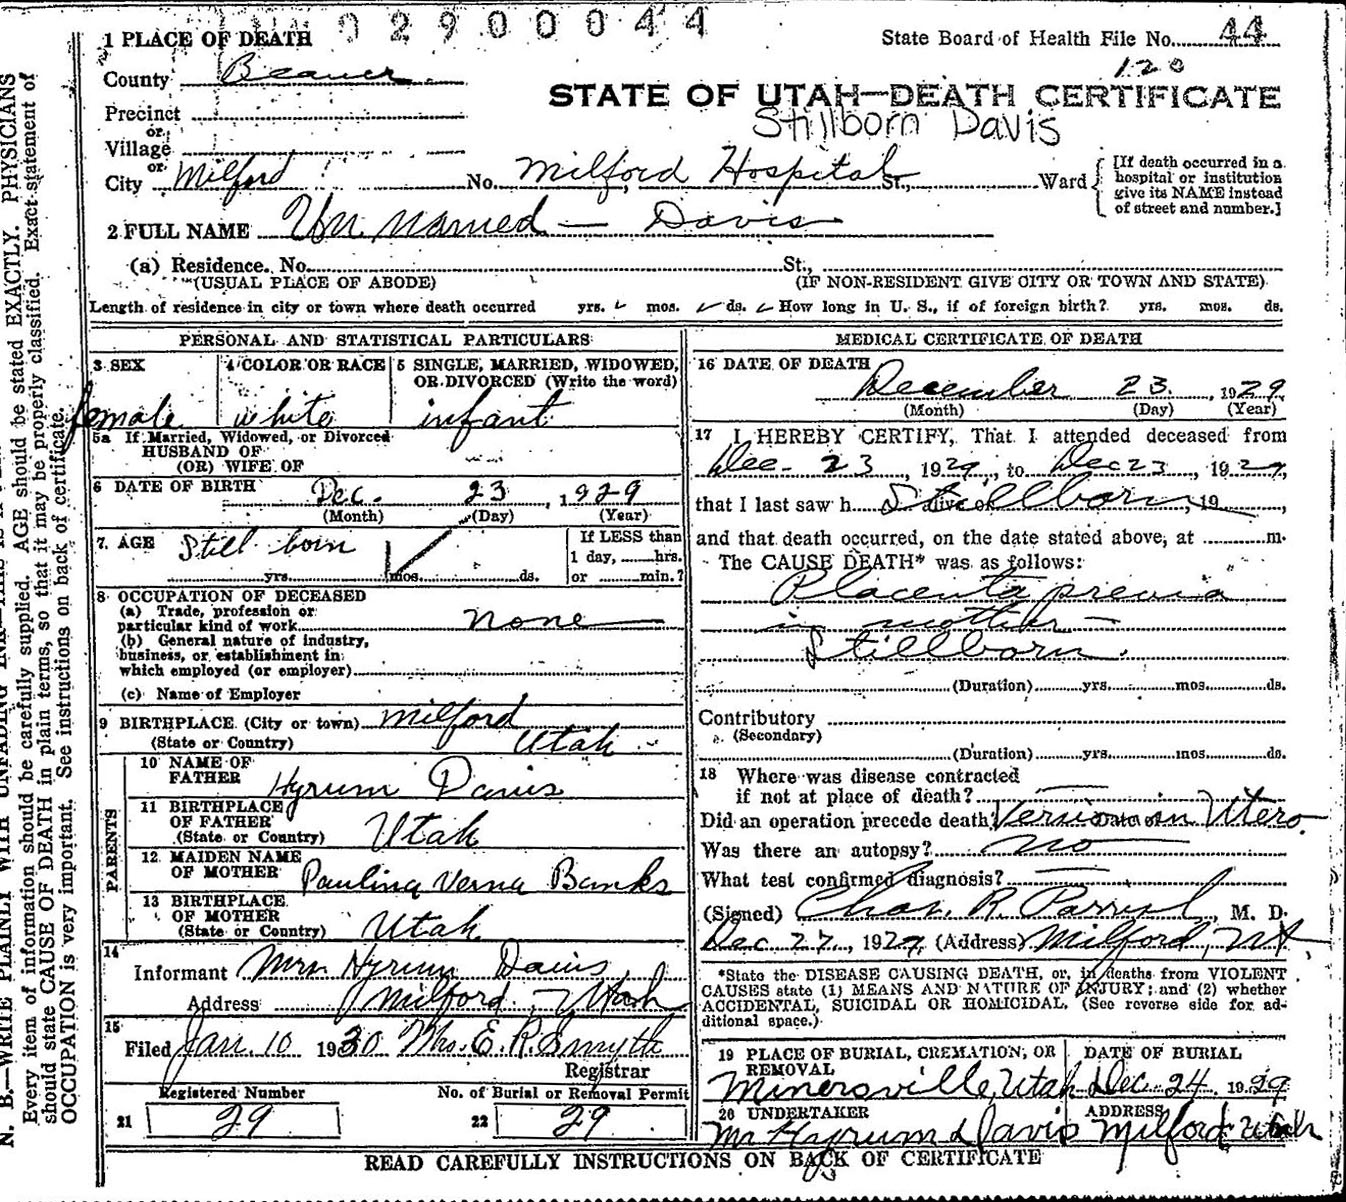 2900044
1 PLACE OF DEATH
State Board of Health File No. 44
120
County Beaver
STATE OF UTAH—DEATH CERTIFICATE
Precinct
or
Village
Stillborn Davis
or
City Milford No. Milford Hospital St., Ward
[If death occurred in a
hospital or institution
give its NAME instead
of street and number.]
2 FULL NAME Un named — Davis
(a) Residence. No. St.,
(USUAL PLACE OF ABODE) (IF NON-RESIDENT GIVE CITY OR TOWN AND STATE)
Length of residence in city or town where death occurred yrs. mos. ds. How long in U. S., if of foreign birth? yrs. mos. ds.
PERSONAL AND STATISTICAL PARTICULARS
3 SEX
female
4 COLOR OR RACE
white
5 SINGLE, MARRIED, WIDOWED,
OR DIVORCED (Write the word)
infant
5a If Married, Widowed, or Divorced
HUSBAND OF
(OR) WIFE OF
6 DATE OF BIRTH Dec. 23, 1929
(Month) (Day) (Year)
7. AGE Still born
yrs. mos. ds.
If LESS than
1 day, hrs.
or min.?
8 OCCUPATION OF DECEASED
(a) Trade, profession or
particular kind of work none
(b) General nature of industry,
business, or establishment in
which employed (or employer)
(c) Name of Employer
9 BIRTHPLACE (City or town) Milford
(State or Country) Utah
PARENTS
10 NAME OF
FATHER Hyrum Davis
11 BIRTHPLACE
OF FATHER
(State or Country) Utah
12 MAIDEN NAME
OF MOTHER Paulina Verna Banks
13 BIRTHPLACE
OF MOTHER
(State or Country) Utah
14
Informant Mrs Hyrum Davis
Address Milford, Utah
15
Filed Jan. 10 1930 Mrs. E. R. Smyth
Registrar
Registered Number No. of Burial or Removal Permit
21 29 22 29
MEDICAL CERTIFICATE OF DEATH
16 DATE OF DEATH
December 23, 1929
(Month) (Day) (Year)
17 I HEREBY CERTIFY, That I attended deceased from
Dec. 23, 1929, to Dec 23, 1929,
that I last saw h alive on Stillborn, 19
and that death occurred, on the date stated above, at m.
The CAUSE DEATH* was as follows:
Placenta previa
in mother —
Stillborn.
(Duration) yrs. mos. ds.
Contributory
(Secondary)
(Duration) yrs. mos. ds.
18 Where was disease contracted
if not at place of death?
Did an operation precede death? Version in Utero Date of
Was there an autopsy? no
What test confirmed diagnosis?
(Signed) Chas. R. Parrish, M. D.
Dec 27, 1929 (Address) Milford, Ut
*State the DISEASE CAUSING DEATH, or, in deaths from VIOLENT
CAUSES state (1) MEANS AND NATURE OF INJURY; and (2) whether
ACCIDENTAL, SUICIDAL OR HOMICIDAL. (See reverse side for ad-
ditional space.)
19 PLACE OF BURIAL, CREMATION, OR
REMOVAL
Minersville, Utah
DATE OF BURIAL
Dec. 24 1929
20 UNDERTAKER
Mr Hyrum Davis
ADDRESS
Milford Utah
READ CAREFULLY INSTRUCTIONS ON BACK OF CERTIFICATE
N. B.—WRITE PLAINLY WITH UNFADING INK—THIS IS A
Every item of information should be carefully supplied. AGE should be stated EXACTLY. PHYSICIANS
should state CAUSE OF DEATH in plain terms, so that it may be properly classified. Exact statement of
OCCUPATION is very important. See instructions on back of certificate.